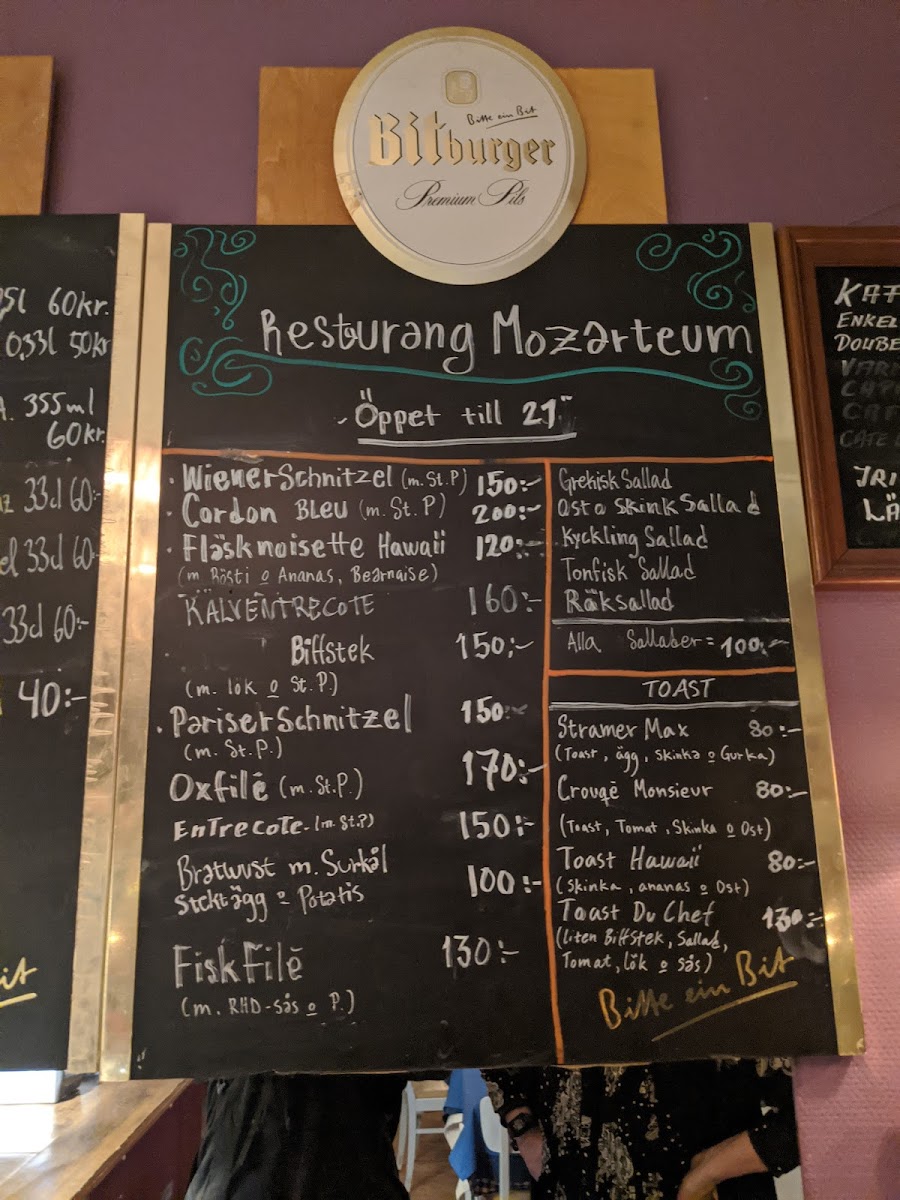 Bitte ein Bit
Bitburger
Premium Pils
Resturang Mozarteum
Öppet till 21
Wiener Schnitzel (m. St. P) 150:-
Cordon BLEU (m. St. P) 200:-
Fläsknoisette Hawaii 120:-
(m Rösti o Ananas, Bearnaise)
KALVENTRECOTE 160:-
Biffstek 150:-
(m. lök o St. P.)
Pariser Schnitzel 150:-
(m. St. P.)
Oxfilé (m. St. P.) 170:-
Entrecote (m. St. P) 150:-
Bratwust m. Surkål
Stcktägg o Potatis 100:-
Fiskfilé 130:-
(m. RHD-sås o P.)
Grekisk Sallad
Ost o Skink Sallad
Kyckling Sallad
Tonfisk Sallad
Räksallad
Alla Sallader = 100:-
TOAST
Stramer Max 80:-
(Toast, ägg, Skinka o Gurka)
Crouqe Monsieur 80:-
(Toast, Tomat, Skinka o Ost)
Toast Hawaii 80:-
(Skinka, ananas o Ost)
Toast Du Chef 130:-
(Liten Biffstek, Sallad,
Tomat, lök o sås)
Bitte ein Bit
5l 60kr.
0,33l 50kr
355ml
60kr.
33cl 60:-
33cl 60-
33cl 60:-
40:-
ENKEL